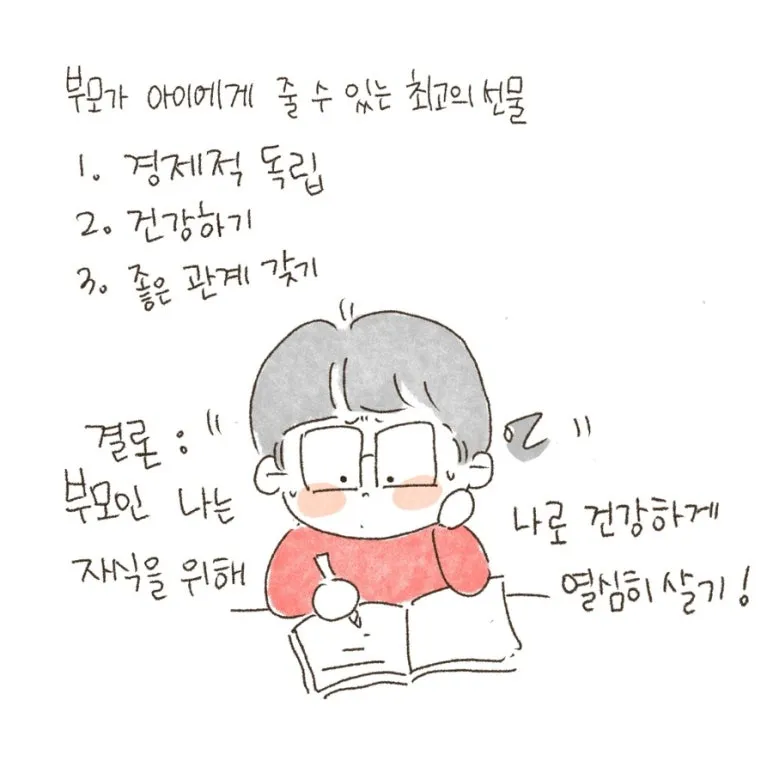 부모가 아이에게 줄 수 있는 최고의 선물
1. 경제적 독립
2. 건강하기
3. 좋은 관계 갖기
결론 :
부모인 나는
자식을 위해
나로 건강하게
열심히 살기!